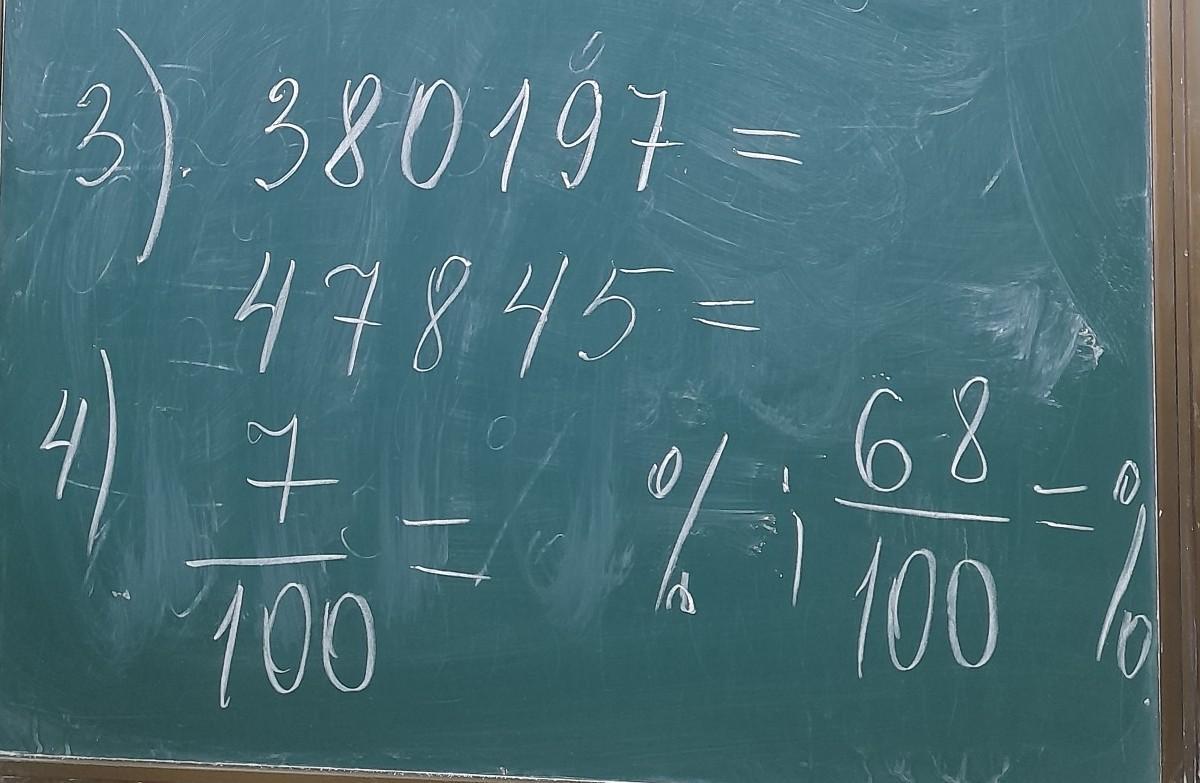 3) 380197 =
47845 =
4) 7/100 = % ; 68/100 = %